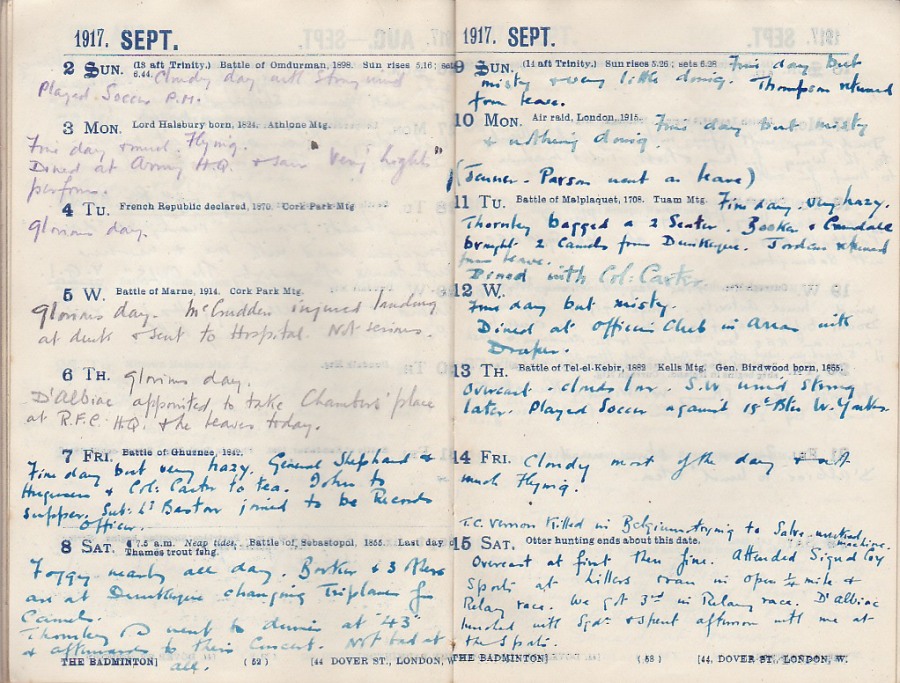 1917. SEPT.
2 SUN. (13 aft Trinity.) Battle of Omdurman, 1898. Sun rises 5.16; sets
6.44. Cloudy day with strong wind
Played Soccer P.M.
3 MON. Lord Halsbury born, 1824. Athlone Mtg.
Fine day & much Flying.
Dined at Army H.Q. & saw "Very Lights"
perform.
4 TU. French Republic declared, 1870. Cork Park Mtg
Glorious day.
5 W. Battle of Marne, 1914. Cork Park Mtg.
Glorious day. McCrudden injured landing
at dusk & sent to Hospital. Not serious.
6 TH. Glorious day.
D'Albiac appointed to take Chambers' place
at R.F.C. H.Q. & he leaves today.
7 FRI. Battle of Ghuznee, 1842.
Fine day but very hazy. General Shephard &
& Col: Carter to tea. John to
supper. Sub: Lt joined to be Records
Officer.
8 SAT. 7.5 a.m. Neap tides. Battle of Sebastopol, 1855. Last day of
Thames trout fshg.
Foggy nearly all day. Booker & 3 others
are at Dunkerque changing Triplanes for
Camels.
Thornley & I went to dinner at "43"
& afterwards to their Concert. Not bad at
all.
THE BADMINTON] (52) [44 DOVER ST., LONDON, W.
1917. SEPT.
9 SUN. (14 aft Trinity.) Sun rises 5.26; sets 6.28 Fine day but
misty & very little doing. Thompson returned
from leave.
10 MON. Air raid, London, 1915. Fine day but misty
& nothing doing.
(Jenner-Parson went on leave)
11 TU. Battle of Malplaquet, 1708. Tuam Mtg. Fine day. very hazy.
Thornley bagged a 2 Seater. Booker & Crundale
brought 2 Camels from Dunkerque. Jordan returned
from leave.
Dined with Col: Carter
12 W.
Fine day but misty.
Dined at Officers Club in Arras with
Draper.
13 TH. Battle of Tel-el-Kebir, 1882 Kells Mtg. Gen. Birdwood born, 1865.
Overcast - clouds low. S.W. wind strong
later. Played Soccer against W. Yorks.
14 FRI. Cloudy most of the day & not
much Flying.
T.C. Vernon killed in Belgium trying to Salve wrecked
machine.
15 SAT. Otter hunting ends about this date.
Overcast at first then fine. Attended Signal Coy
Sports at Villers & ran in open ½ mile &
Relay race. We got 3rd in Relay race. D'Albiac
lunched with Sqdn & spent afternoon with me at
the Sports.
THE BADMINTON] (53) [44, DOVER ST., LONDON, W.